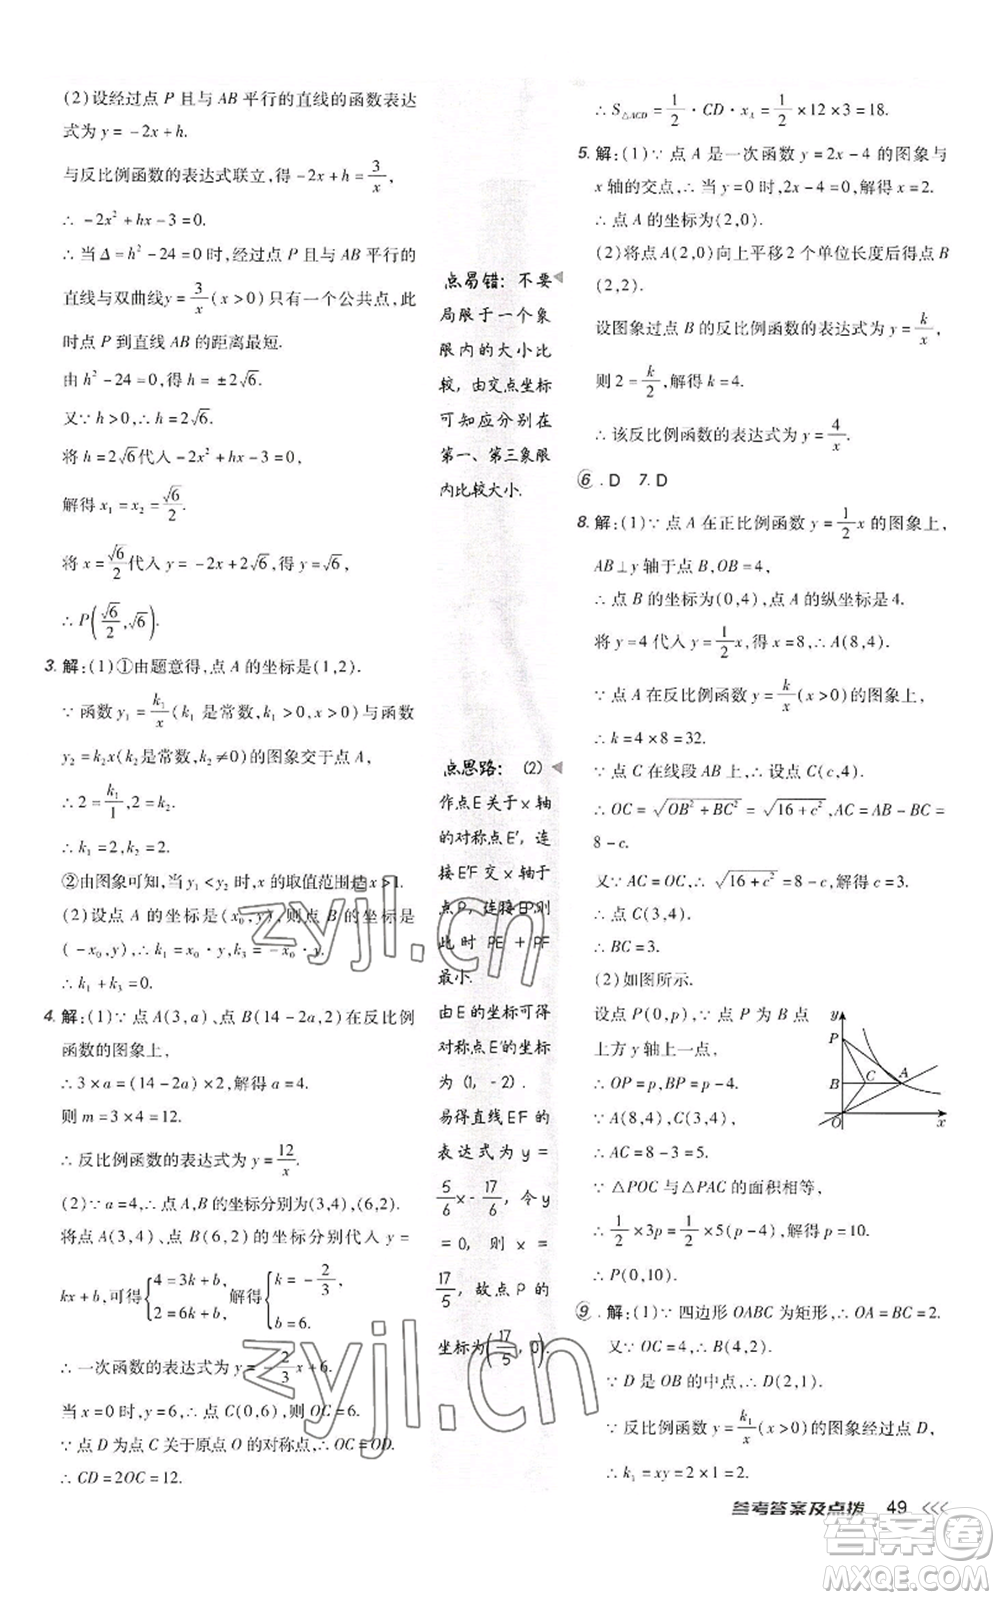 (2)设经过点 P 且与 AB 平行的直线的函数表达
式为 y = -2x + h.
与反比例函数的表达式联立,得 -2x + h = 3/x,
∴ -2x² + hx - 3 = 0.
∴ 当 Δ = h² - 24 = 0 时,经过点 P 且与 AB 平行的
直线与双曲线y = 3/x (x > 0)只有一个公共点,此
时点 P 到直线 AB 的距离最短.
由 h² - 24 = 0,得 h = ±2√6.
又∵ h > 0,∴ h = 2√6.
将 h = 2√6代入 -2x² + hx - 3 = 0,
解得 x₁ = x₂ = √6/2.
将 x = √6/2 代入 y = -2x + 2√6,得 y = √6,
∴ P(√6/2, √6).
3. 解:(1)①由题意得,点 A 的坐标是(1,2).
∵ 函数 y₁ = k₁/x (k₁ 是常数, k₁ > 0, x > 0)与函数
y₂ = k₂x(k₂是常数,k₂ ≠ 0)的图象交于点 A,
∴ 2 = k₁/1, 2 = k₂.
∴ k₁ = 2, k₂ = 2.
②由图象可知,当 y₁ < y₂ 时,x 的取值范围是 x > 1.
(2)设点 A 的坐标是(x₀,y),则点 B 的坐标是
(-x₀,y),∴ k₁ = x₀·y, k₃ = -x₀·y,
∴ k₁ + k₃ = 0.
4. 解:(1)∵ 点 A(3,a)、点 B(14 - 2a,2)在反比例
函数的图象上,
∴ 3 × a = (14 - 2a) × 2,解得 a = 4.
则 m = 3 × 4 = 12.
∴ 反比例函数的表达式为 y = 12/x.
(2)∵ a = 4,∴ 点 A,B 的坐标分别为(3,4),(6,2).
将点 A(3,4)、点 B(6,2)的坐标分别代入 y =
kx + b,可得{4 = 3k + b, 2 = 6k + b, 解得{k = -2/3, b = 6.
∴ 一次函数的表达式为 y = -2/3 x + 6.
当 x = 0 时,y = 6,∴ 点 C(0,6),则 OC = 6.
∵ 点 D 为点 C 关于原点 O 的对称点,∴ OC = OD.
∴ CD = 2OC = 12.
点易错: 不要
局限于一个象
限内的大小比
较, 由交点坐标
可知应分别在
第一、第三象限
内比较大小.
点思路: (2)
作点E关于x轴
的对称点E',连
接E'F交x轴于
点P,连接EP,则
此时 PE + PF
最小.
由E的坐标可得
对称点E'的坐标
为(1, -2).
易得直线E'F的
表达式为 y =
5/6 x - 17/6, 令 y
= 0, 则 x =
17/5, 故点P的
坐标为(17/5, 0).
∴ S△ACD = 1/2 · CD · x_A = 1/2 × 12 × 3 = 18.
5. 解:(1)∵ 点 A 是一次函数 y = 2x - 4 的图象与
x 轴的交点,∴ 当 y = 0 时,2x - 4 = 0,解得 x = 2.
∴ 点 A 的坐标为(2,0).
(2)将点 A(2,0)向上平移 2 个单位长度后得点 B
(2,2).
设图象过点 B 的反比例函数的表达式为 y = k/x,
则 2 = k/2,解得 k = 4.
∴ 该反比例函数的表达式为 y = 4/x.
6. D 7. D
8. 解:(1)∵ 点 A 在正比例函数 y = 1/2 x 的图象上,
AB⊥y 轴于点 B,OB = 4,
∴ 点 B 的坐标为(0,4),点 A 的纵坐标是 4.
将 y = 4 代入 y = 1/2 x,得 x = 8,∴ A(8,4).
∵ 点 A 在反比例函数 y = k/x (x > 0)的图象上,
∴ k = 4 × 8 = 32.
∵ 点 C 在线段 AB 上,∴ 设点 C(c,4).
∴ OC = √(OB² + BC²) = √(16 + c²), AC = AB - BC =
8 - c.
又∵ AC = OC,∴ √(16 + c²) = 8 - c,解得 c = 3.
∴ 点 C(3,4).
∴ BC = 3.
(2)如图所示.
设点 P(0,p),∵ 点 P 为 B 点
上方 y 轴上一点,
∴ OP = p, BP = p - 4,
∵ A(8,4), C(3,4),
∴ AC = 8 - 3 = 5.
∵ △POC 与△PAC 的面积相等,
∴ 1/2 × 3p = 1/2 × 5(p - 4),解得 p = 10.
∴ P(0,10).
y
P
B
C
A
O
x
9. 解:(1)∵ 四边形 OABC 为矩形,∴ OA = BC = 2.
又∵ OC = 4,∴ B(4,2).
∵ D 是 OB 的中点,∴ D(2,1).
∵ 反比例函数 y = k₁/x (x > 0)的图象经过点 D,
∴ k₁ = xy = 2 × 1 = 2.
参考答案及点拨 49
zyjl.cn
zyjl.cn
答案圈
MXQE.COM